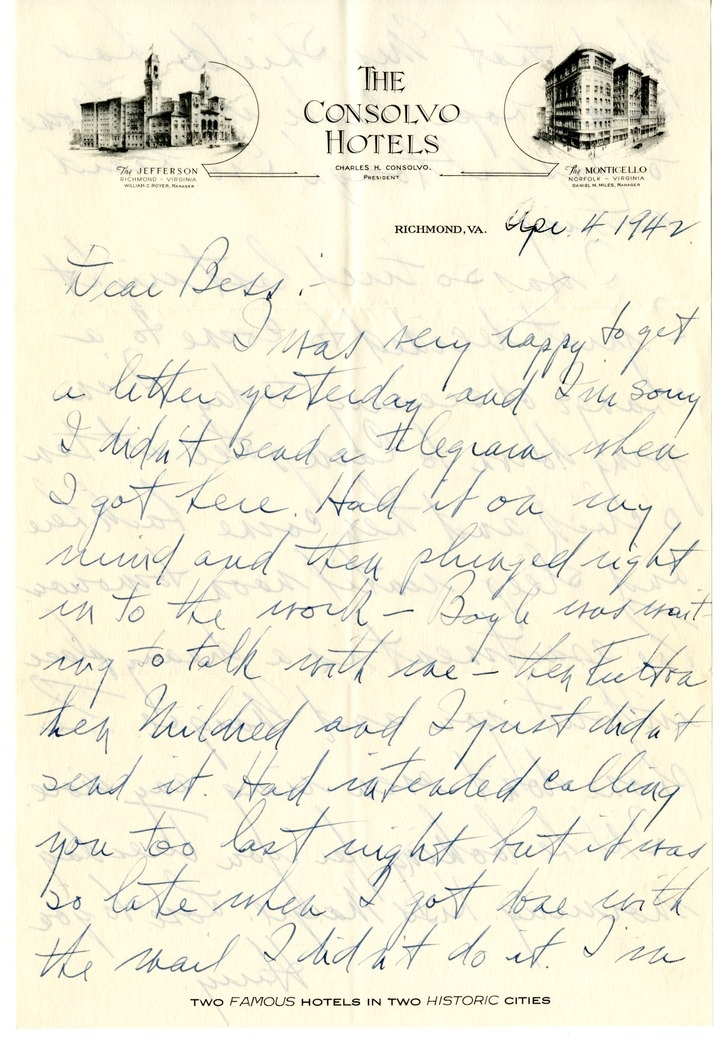 THE
CONSOLVO
HOTELS
CHARLES H. CONSOLVO.
PRESIDENT
The JEFFERSON
RICHMOND - VIRGINIA
WILLIAM C. ROYER, MANAGER
The MONTICELLO
NORFOLK - VIRGINIA
DANIEL M. MILES, MANAGER
RICHMOND, VA. Apr. 4, 1942
Dear Bess:-
I was very happy to get
a letter yesterday and I'm sorry
I didn't send a telegram when
I got here. Had it on my
mind and then plunged right
in to the work - Boyle was wait-
ing to talk with me - then Fulton
then Mildred and I just didn't
send it. Had intended calling
you too last night but it was
so late when I got done with
the mail I didn't do it. I'm
TWO FAMOUS HOTELS IN TWO HISTORIC CITIES